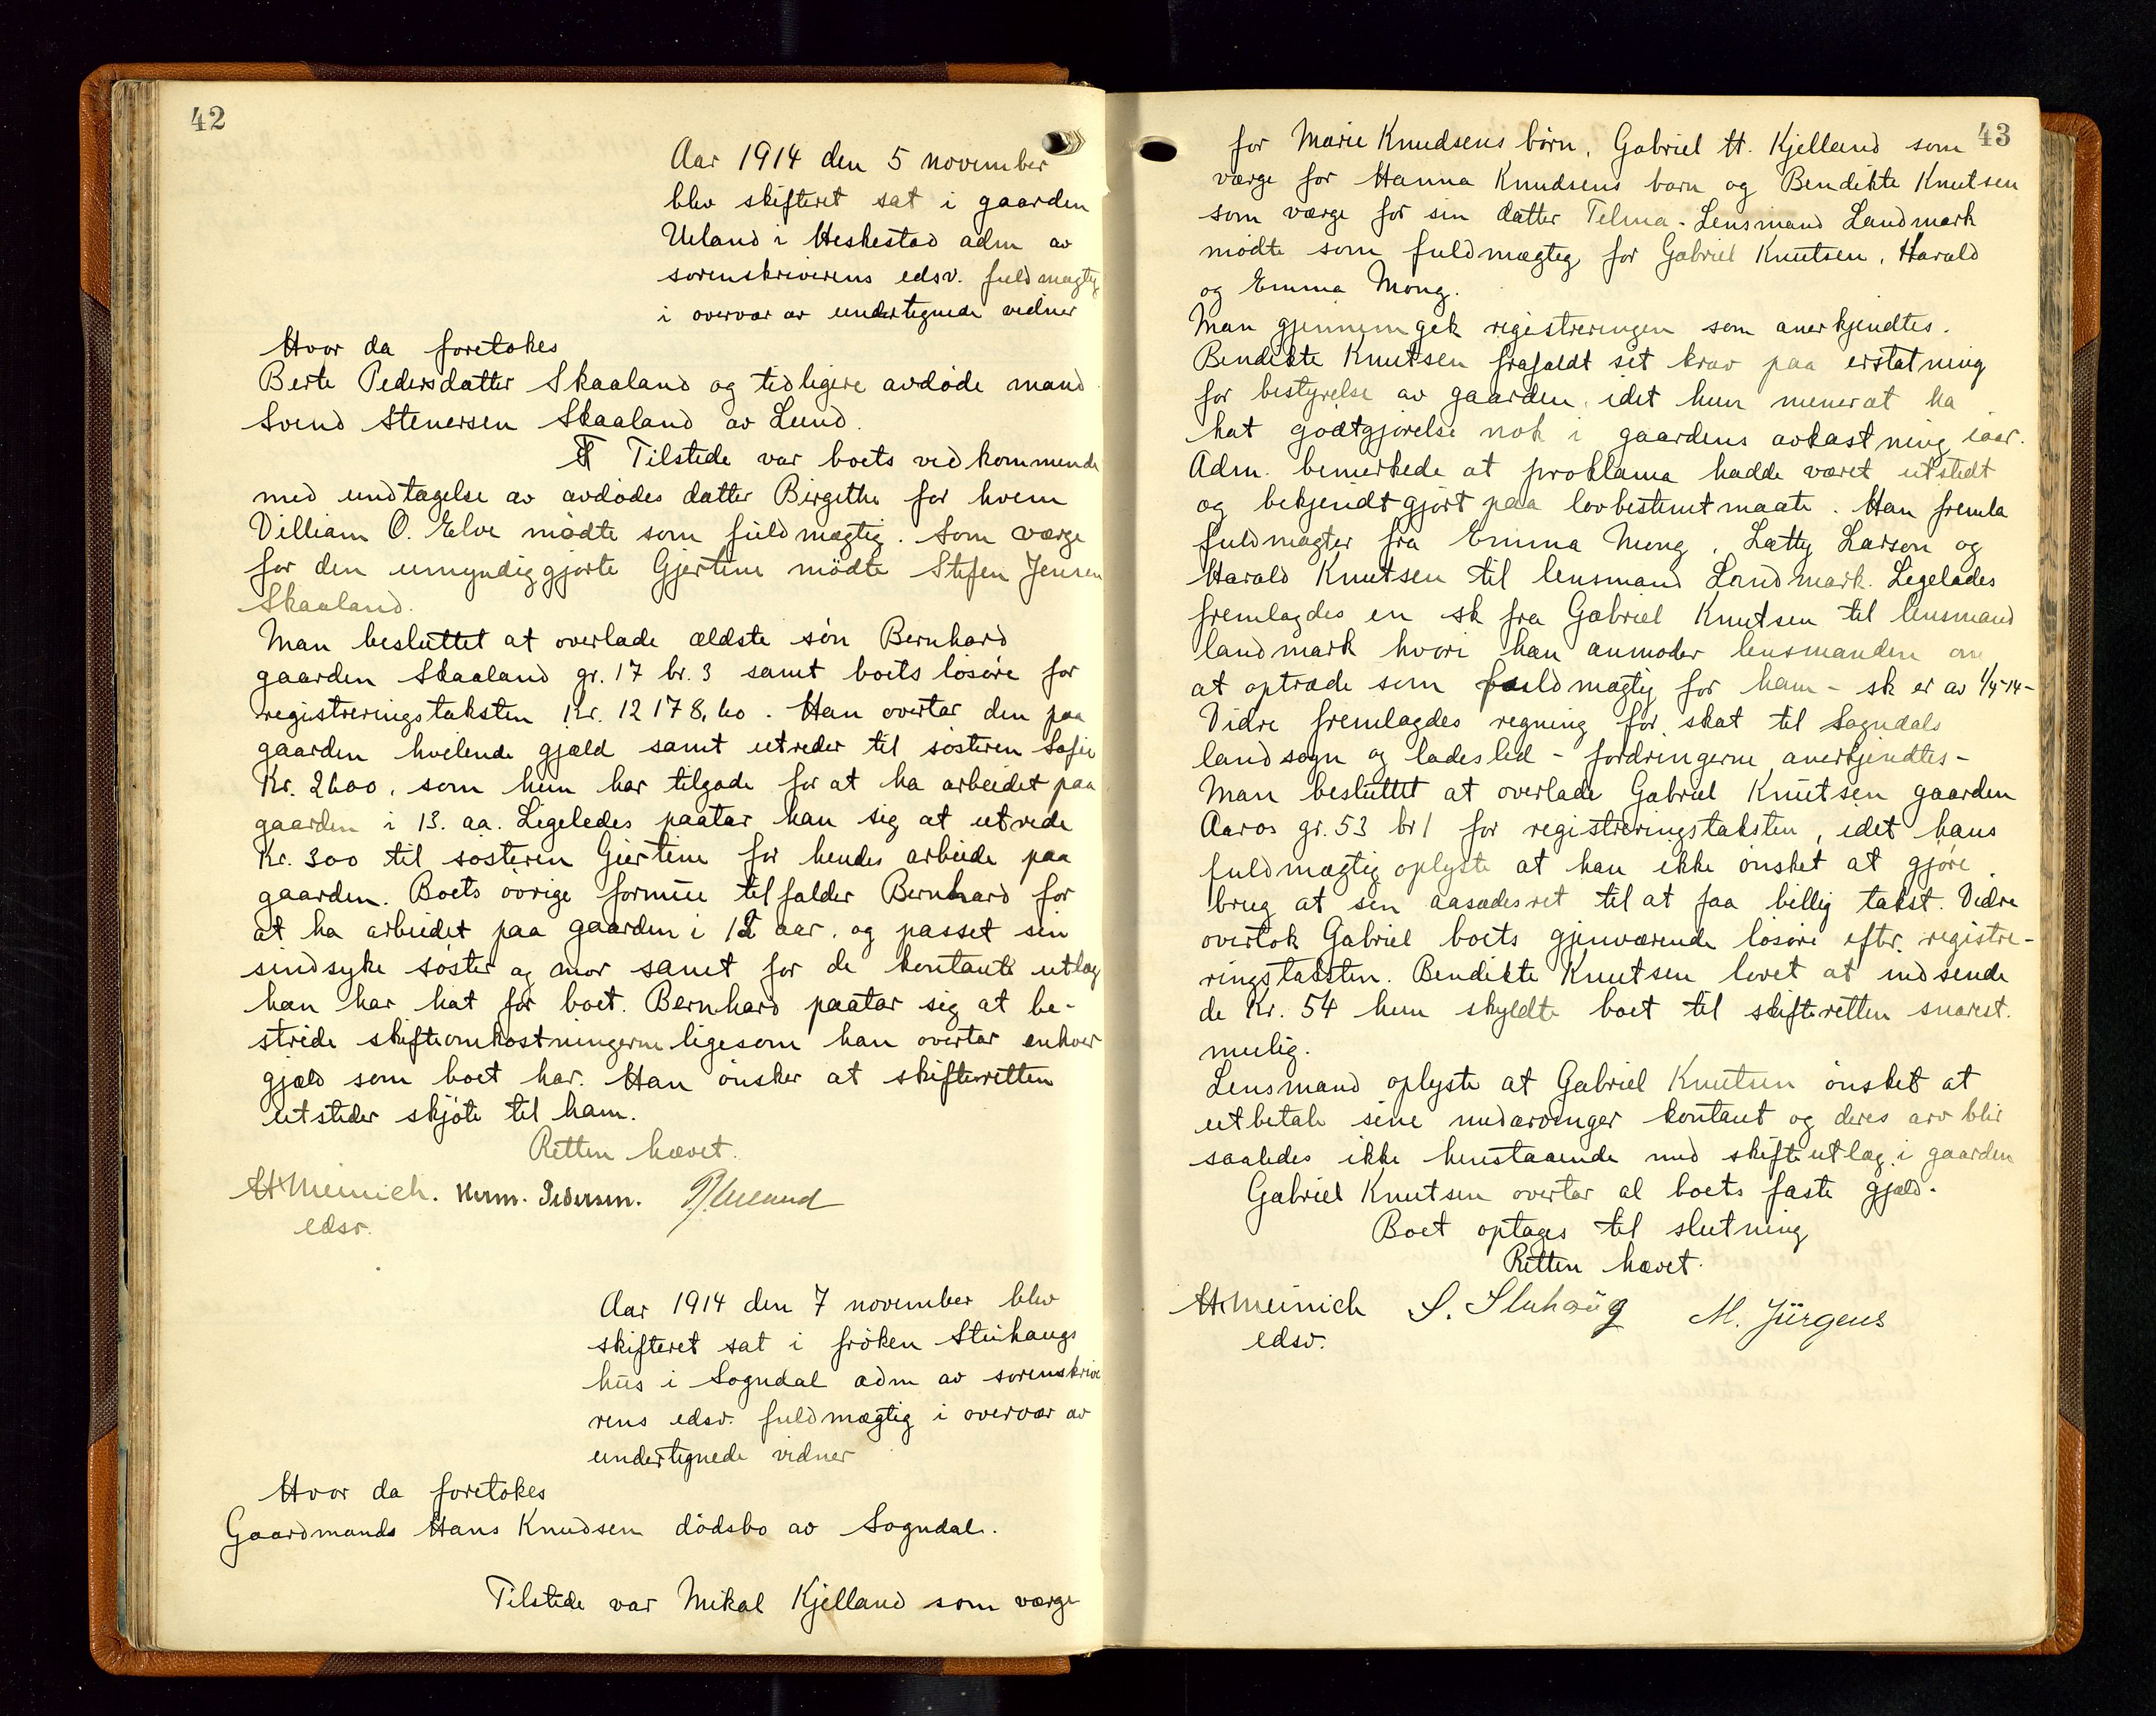 42
Aar 1914 den 5 november
blev skifteret sat i gaarden
Ueland i Heskestad adm av
sorenskriverens edsv. fuldmægtig
i overvær av undertegnede vidner
Hvor da foretokes
Berte Pedersdatter Skaaland og tidligere avdøde mand
Svend Stenersen Skaaland av Lund.
Tilstede var boets vedkommende
med undtagelse av avdødes datter Birgithe for hvem
Villiam O. Elve mødte som fuldmægtig. Som værge
for den umyndiggjorte Gjertine mødte Stefen Jensen
Skaaland.
Man besluttet at overlade ældste søn Bernhard
gaarden Skaaland gr. 17 br. 3 samt boets løsøre for
registreringstaksten Kr. 12178,60. Han overtar den paa
gaarden hvilende gjæld samt utreder til søsteren Sofie
Kr. 2600, som hun har tilgode for at ha arbeidet paa
gaarden i 13. aa. Ligeledes paatar han sig at utrede
Kr. 300 til søsteren Giertine for hendes arbeide paa
gaarden. Boets øvrige formue tilfalder Bernhard for
at ha arbeidet paa gaarden i 12 aar, og passet sin
sindsyke søster og mor samt for de kontante utlæg
han har hat for boet. Bernhard paatar sig at be-
stride skifteomkostningerne ligesom han overtar enhver
gjæld som boet har. Han ønsker at skifteretten
utsteder skjøte til ham.
Retten hævet.
H Meinich. Herm. Pedersen. Ueland
edsv.
Aar 1914 den 7 november blev
skifteret sat i frøken Stuhaugs
hus i Sogndal adm av sorenskrive
rens edsv. fuldmægtig i overvær av
undertegnede vidner
Hvor da foretokes
Gaardmands Hans Knudsen dødsbo av Sogndal.
Tilstede var Mikal Kjelland som værge
43
for Marie Knudsens børn, Gabriel H. Kjelland som
værge for Hanna Knudsens barn og Bendikte Knutsen
som værge for sin datter Telma - Lensmand Landmark
mødte som fuldmægtig for Gabriel Knutsen, Harald
og Emma Mong.
Man gjennemgek registreringen som anerkjendtes.
Bendikte Knutsen frafaldt sit krav paa erstatning
for bestyrelse av gaarden, idet hun mener at ha
hat godtgjørelse nok i gaardens avkastning iaar.
Adm. bemerkede at proklama hadde været utstedt
og bekjendtgjort paa lovbestemt maate. Han fremla
fuldmagter fra Emma Mong, Lætty Larson og
Harald Knutsen til lensmand Landmark. Ligelædes
fremlagdes en sk fra Gabriel Knutsen til lensmand
landmark hvori han anmoder lensmanden om
at optræde som fuldmægtig for ham - sk er av 1/4-14-
Vidre fremlagdes regning for skat til Sogndals
landsogn og ladested - fordringerne anerkjendtes -
Man besluttet at overlade Gabriel Knutsen gaarden
Aaros gr. 53 br 1 for registreringstaksten, idet hans
fuldmægtig oplyste at han ikke ønsket at gjøre
brug at sin aasædesret til at faa billig takst. Vidre
overtok Gabriel boets gjenværende løsøre eftr. registre-
ringstaksten. Bendikte Knutsen lovet at indsende
de Kr. 54 hun skyldte boet til skifteretten snarest.
mulig.
Lensmand oplyste at Gabriel Knutsen ønsket at
utbetale sine medarvinger kontant og deres arv blir
saaledes ikke henstaaende med skifteutlæg i gaarden
Gabriel Knutsen overtar al boets faste gjæld.
Boet optages til slutning
Retten hævet.
H Meinich S. Stuhaug M. Jürgens
edsv.